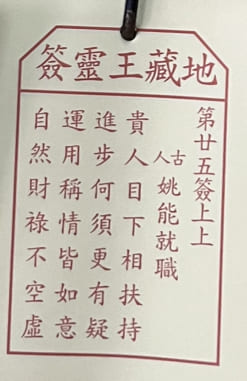 地藏王靈簽
第廿五簽上上
古人姚能就職
貴人目下相扶持
進步何須更有疑
運用稱情皆如意
自然財祿不空虛